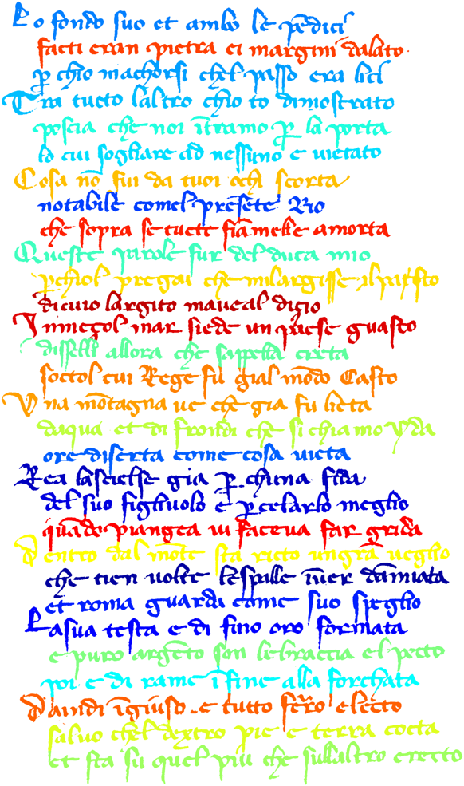 Lo fondo suo et ambo le pēdici
facti eran pietra ei margini dalato
p chio machorsi chel passo era lici
Tra tucto laltro chio to dimostrato
poscia che noi ītramo p la porta
lo cui sogliare ad nessuno e uietato
Cosa nō fu da tuoi ochi scorta
notabile comel presēte Rio
che sopra se tucte fiāmelle amorta
Queste parole fur del duca mio
pchiol pregai che milargisse il pasto
dicuio largito maueal disio
Inmeçol mar siede un paese guasto
disselli allora che sappella creta
soctol cui Rege fu gial mōdo Casto
Una mōtagna ue che gia fu lieta
daqua et di frondi che si chiamo yda
ore diserta come cosa uieta
Rea lascielse gia p chuna fida
del suo figliuolo e pcelarlo meglio
quādo piangea ui faceua far grida
Dentro dal mōte sta ricto ungrā ueglio
che tien uolte lespalle īuer dāmiata
et roma guarda come suo speglio
La sua testa e di fino oro formata
e puro argēto son lebraccia el pecto
poi e di rame īfine alla forchata
Daindi īgiuso e tutto ferro electo
saluo chel dextro pie e terra cocta
et sta su quel piu che sullaltro erecto